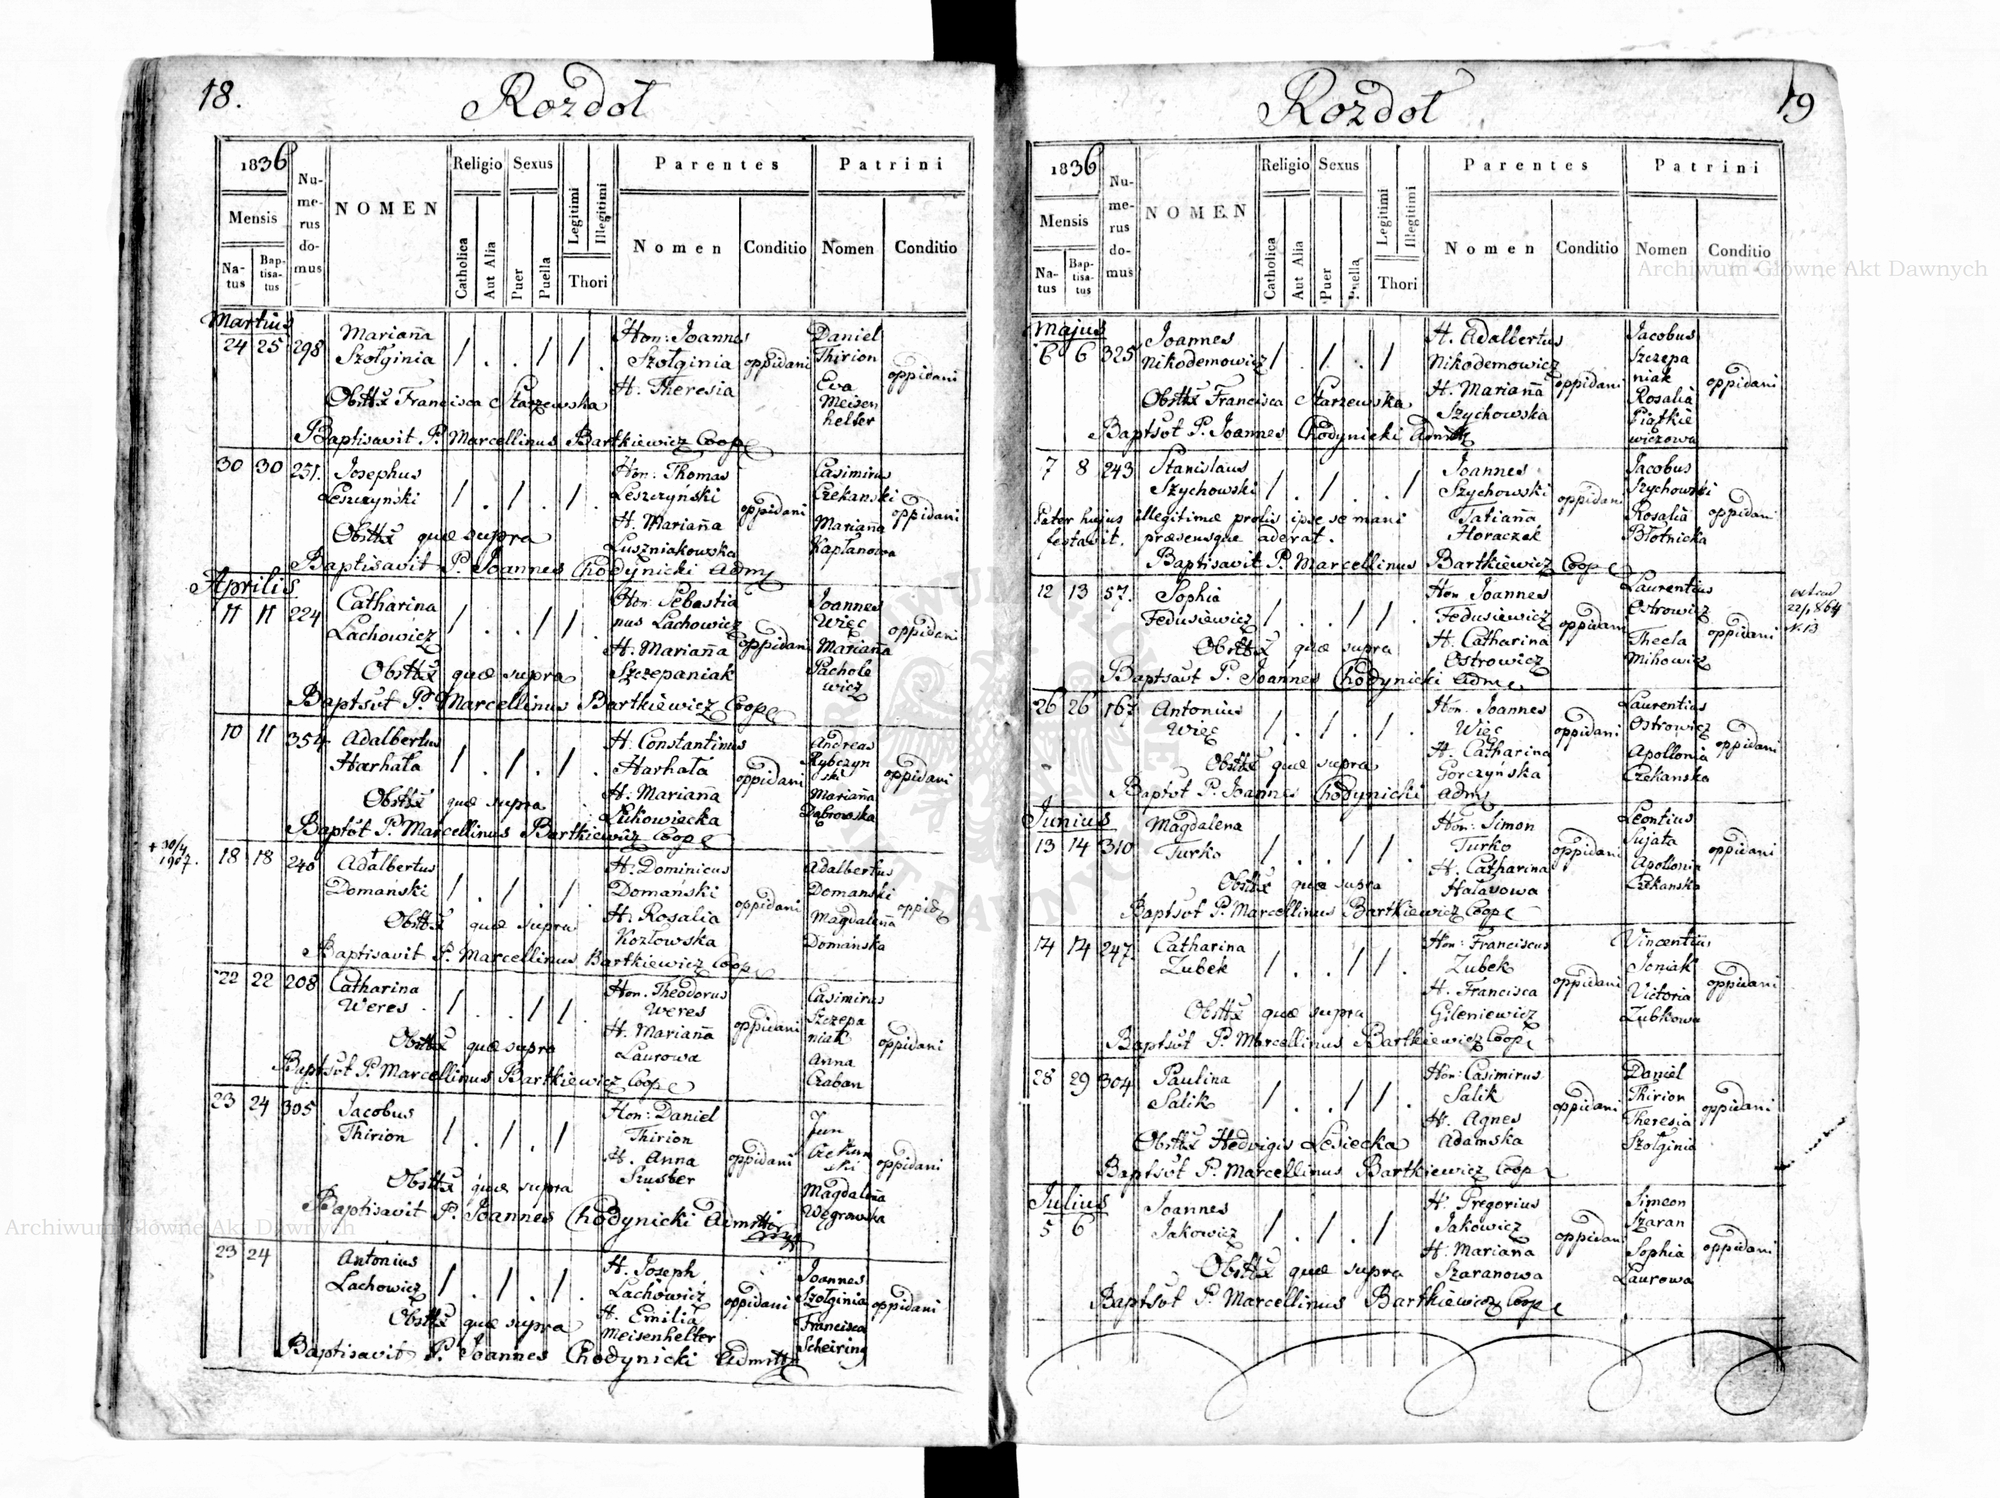 18.
Rozdoł
1836
Mensis
Natus
Baptisatus
Numerus domus
NOMEN
Religio
Catholica
Aut Alia
Sexus
Puer
Puella
Legitimi
Illegitimi
Thori
Parentes
Nomen
Conditio
Patrini
Nomen
Conditio
Martius
24 25 298 Marianna Szołginia / . . / / .
Hon: Joannes Szołginia
H. Theresia
oppidani
Daniel Thirion
Eva Meisenhelter
oppidani
Francisca Starzewska
Baptisavit P. Marcellinus Bartkiewicz Coop
30 30 251. Josephus Leszczyński / . / . / .
Hon: Thomas Leszczyński
H. Marianna Luszniakowska
oppidani
Casimirus Czekanski
Marianna Kapłanowa
oppidani
quæ supra
Baptisavit P. Joannes Chodynicki Adm
Aprilis
11 11 224 Catharina Lachowicz / . . / / .
Hon: Sebastianus Lachowicz
H. Marianna Szczepaniak
oppidani
Joannes Więc
Marianna Pacholewicz
oppidani
quæ supra
Marcellinus Bartkiewicz Coop
10 11 354 Adalbertus Harhała / . / . / .
H. Constantinus Harhała
H. Marianna Łukowiecka
oppidani
Andreas Rybczynski
Marianna Dąbrowska
oppidani
quæ supra
P. Marcellinus Bartkiewicz Coop
+ 30/4 1907.
18 18 240 Adalbertus Domański / . / . / .
H. Dominicus Domański
H. Rosalia Kozłowska
oppidani
Adalbertus Domanski
Magdalena Domańska
quæ supra
Baptisavit P. Marcellinus Bartkiewicz Coop
22 22 208 Catharina Weres / . . / / .
Hon. Theodorus Weres
H. Marianna Laurowa
oppidani
Casimirus Szczepaniak
Anna Czaban
oppidani
quæ supra
P. Marcellinus Bartkiewicz Coop
23 24 305 Jacobus Thirion / . / . /
Hon: Daniel Thirion
H. Anna Szuster
oppidani
Magdalena Węgrowska
oppidani
quæ supra
Baptisavit P. Joannes Chodynicki
23 24 Antonius Lachowicz / . / . / .
H. Joseph Lachowicz
H. Emilia Meisenhelter
oppidani
Joannes Szołginia
Francisca Scheiring
oppidani
quæ supra
Baptisavit P. Joannes Chodynicki
19
Rozdoł
1836
Mensis
Natus
Baptisatus
Numerus domus
NOMEN
Religio
Catholica
Aut Alia
Sexus
Puer
Puella
Legitimi
Illegitimi
Thori
Parentes
Nomen
Conditio
Patrini
Nomen
Conditio
Majus
6 6 325 Joannes Nikodemowicz / . / . . /
H. Adalbertus Nikodemowicz
H. Marianna Szychowska
oppidani
Jacobus Szczepaniak
Rosalia Piątkiewiczowa
oppidani
Francisca Starzewska
P. Joannes Chodynicki
7 8 243 Stanislaus Szychowski / . / . . /
Joannes Szychowski
Tatianna Horaczek
oppidani
Jacobus Szychowski
Rosalia Błotnicka
oppidani
Pater hujus illegitimæ prolis ipse se manifestavit. præsensque aderat.
Baptisavit P. Marcellinus Bartkiewicz Coop
12 13 57. Sophia Fedusiewicz / . . / / .
Hon Joannes Fedusiewicz
H. Catharina Ostrowicz
oppidani
Laurentius Ostrowicz
Thecla Mihowicz
oppidani
quæ supra
P. Joannes Chodynicki Adm
26 26 167 Antonius Więc / . / . / .
Hon. Joannes Więc
H. Catharina Gorczyńska
oppidani
Laurentius Ostrowicz
Apollonia Czekanska
oppidani
quæ supra
P. Joannes Chodynicki Adm
Junius
13 14 310 Magdalena Turko / . . / / .
Hon: Simon Turko
H. Catharina Hałasowa
oppidani
Leontius Sujata
Apollonia Czekanska
oppidani
quæ supra
P. Marcellinus Bartkiewicz Coop
14 14 247. Catharina Zubek / . . / / .
Hon: Franciscus Zubek
H. Francisca Gileniewicz
oppidani
Vincentius Joniak
Victoria Zubkowa
oppidani
quæ supra
P. Marcellinus Bartkiewicz Coop
28 29 304 Paulina Salik / . . / / .
Hon: Casimirus Salik
H. Agnes Adamska
oppidani
Daniel Thirion
Theresia Szołginia
oppidani
Hedvigis Lesiecka
P. Marcellinus Bartkiewicz Coop
Julius
5 6 Joannes Jakowicz / . / . / .
H. Gregorius Jakowicz
H. Marianna Szaranowa
oppidani
Simeon Szaran
Sophia Laurowa
oppidani
quæ supra
P. Marcellinus Bartkiewicz Coop
Archiwum Główne Akt Dawnych
Archiwum Główne Akt Dawnych
ARCHIWUM GŁÓWNE AKT DAWNYCH